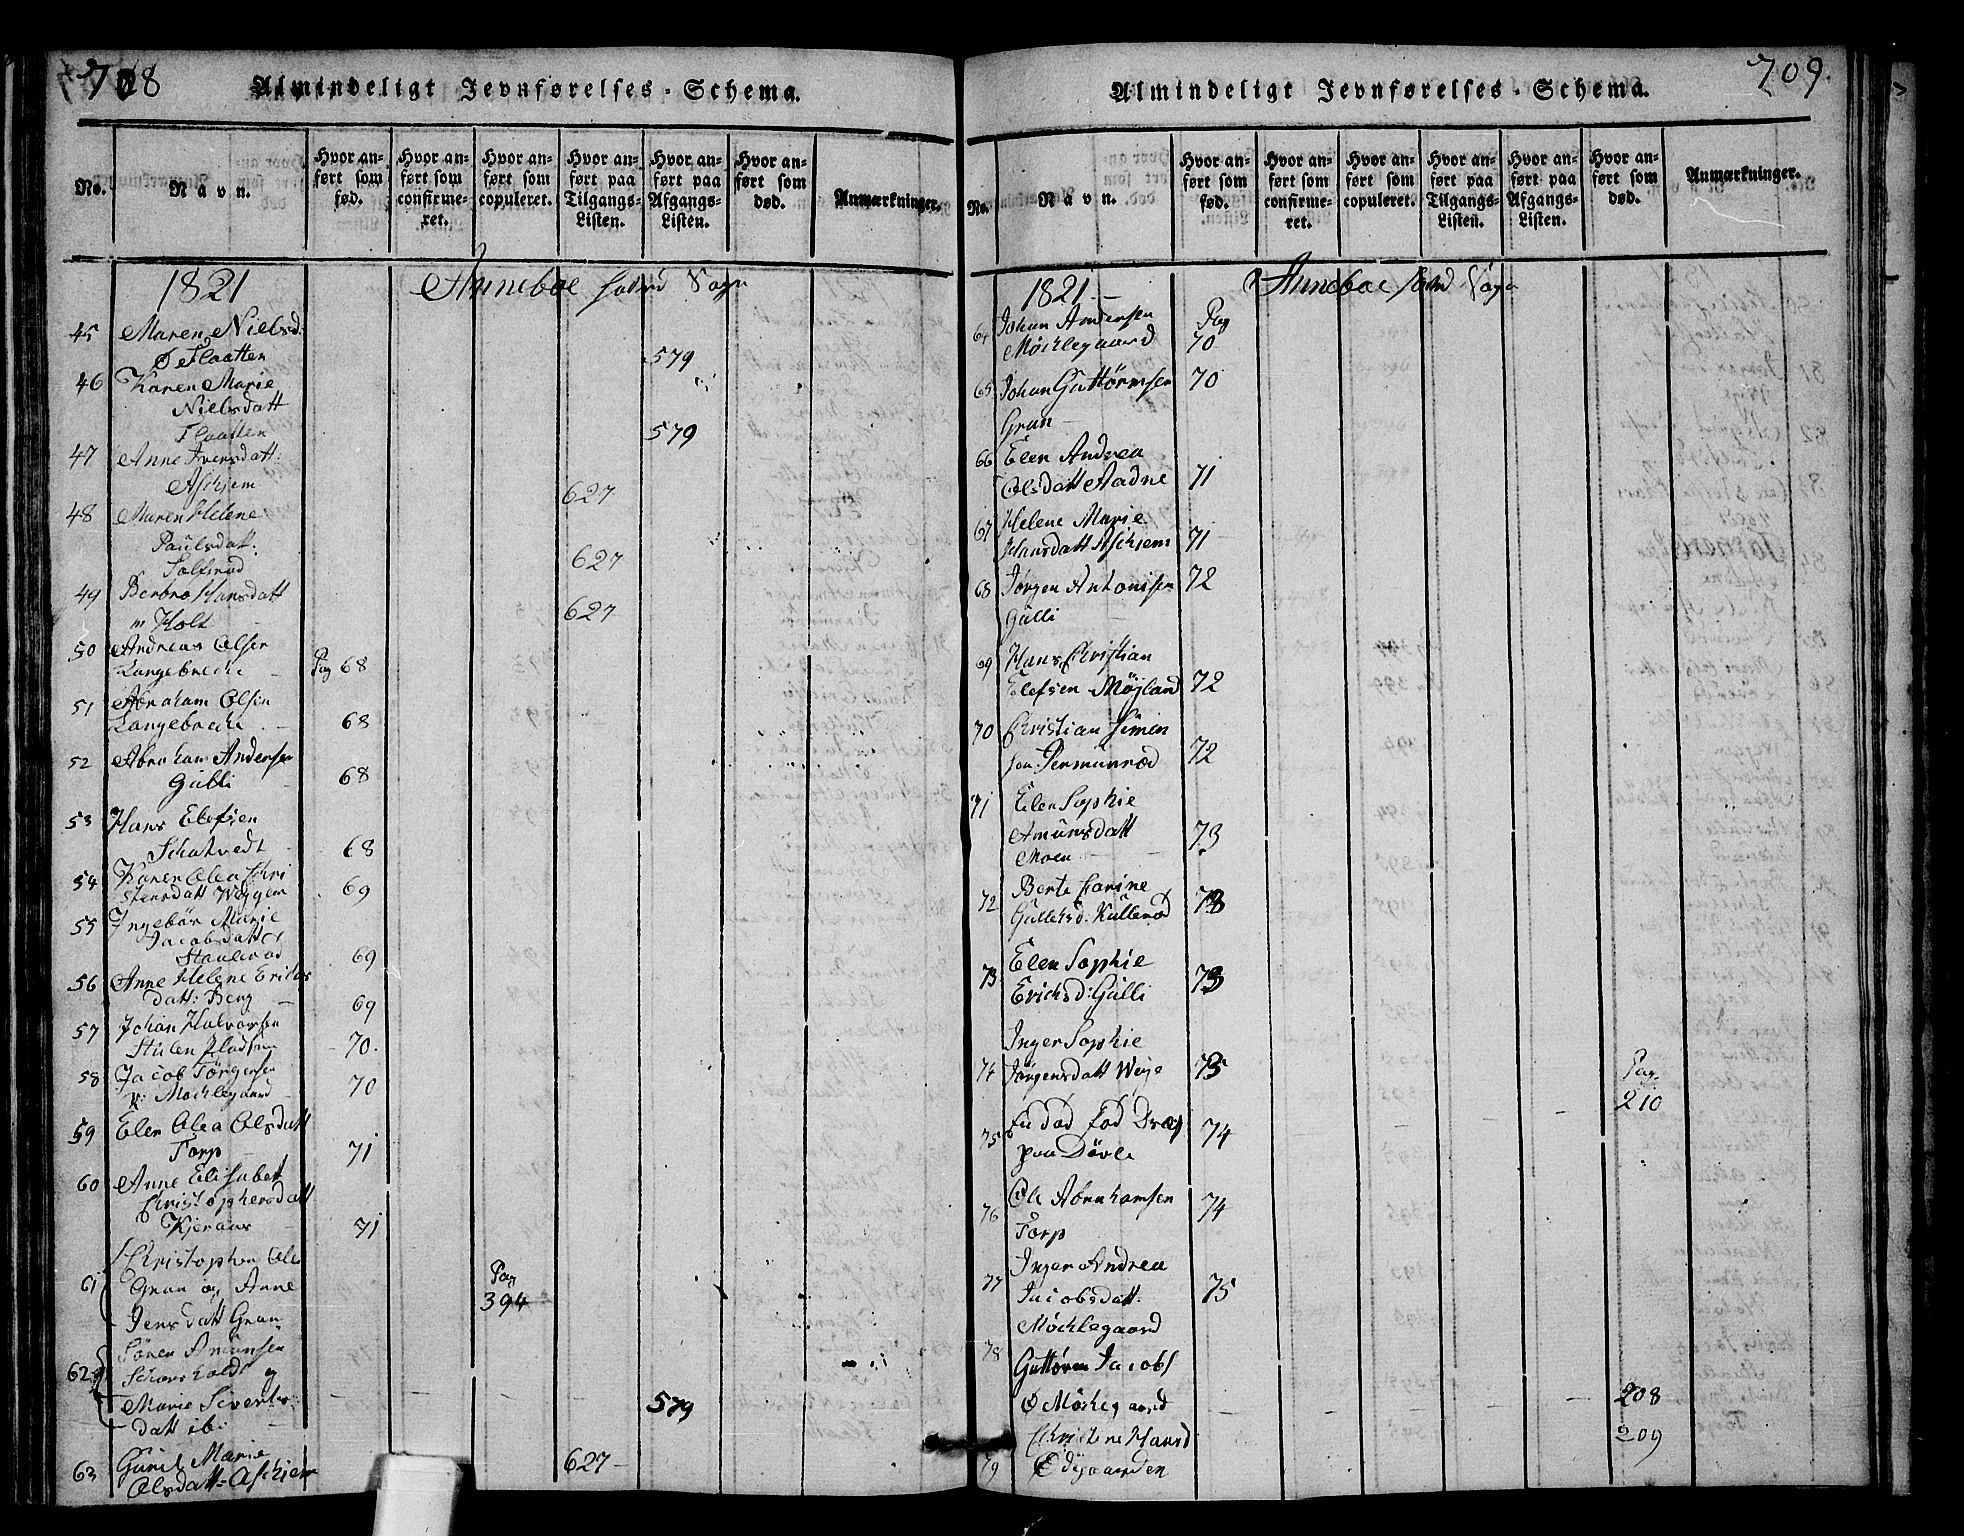 708
Almindeligt Jevnførelses-Schema.
No.
Navn.
Hvor anført som fød.
Hvor anført som confirmeret.
Hvor anført som copuleret.
Hvor anført paa Tilgangs-Listen.
Hvor anført paa Afgangs-Listen.
Hvor anført som død.
Anmærkninger.
1821 Anneboe Sogn
45 Maren Nielsd:
Ø Flaatten 579
46 Karen Marie
Nielsdatt
Flaatten 579
47 Anne Iversdatt:
Aschjem 627
48 Maren Helene
Paulsdat:
627
49 Berbro Hansdatt
m Holt 627
50 Andreas Olsen
Langebreche - Pag 68
51 Abraham Olsen
Langebreche - 68
52 Abraham Andersen
Gulli - 68
53 Hans Elefsen
Schatvedt 68
54 Karen Olea Chri
stensdatt Weggem 69
55 Ingebor Marie
Jacobsdatt
69
56 Anne Helene Erichs
datt: Berg - 69
57 Johan Halvorsen
Stulen 70.
58 Jacob Jörgensen
K: Möchlegaard 70
59 Elen Olea Olsdatt
Torp - 71
60 Anne Elisabet
Christophersdatt
Kjeraas - 71
Christopher Ols
61 Gran og Anne Pag
Jensdatt Gran 394
Sören Amunsen
62 og
Marie Siverts
datt ibi - 579
63 Guril Marie
Olsdatt Aschjem 627
709.
Almindeligt Jevnførelses-Schema.
No.
Navn.
Hvor anført som fød.
Hvor anført som confirmeret.
Hvor anført som copuleret.
Hvor anført paa Tilgangs-Listen.
Hvor anført paa Afgangs-Listen.
Hvor anført som død.
Anmærkninger.
1821 - Anneboe Sogn
64 Johan Andersen Pag
Möchlegaard 70
65 Johan Guttormsen 70
Gran -
66 Elen Andrea
Olsdatt Aadne 71
67 Helene Marie
Hansdatt Aschjem 71
68 Jörgen Antonisen 72
Gulli
69 Hans Christian
Elefsen Möjland 72
70 Christian Simen
sen: Permunröd 72
71 Elen Sophie
Amunsdatt 73
Moen
72 Berte Carine
Gullichsd: Kullerød 73
73 Elen Sophie
Erichsd: Gulli 73
Inger Sophie
74 Jörgensdatt Weye 73 Pag. 210
75 En død fød Dreng 74
paa Dövle
76 Ole Abrahamsen 74
Torp
77 Inger Andrea
Jacobsdatt. 75
Möchlegaard
78 Guttorm Jacobs
Ø Möchlegaard 208
Christine Hansd 209
79 Ødegaarden